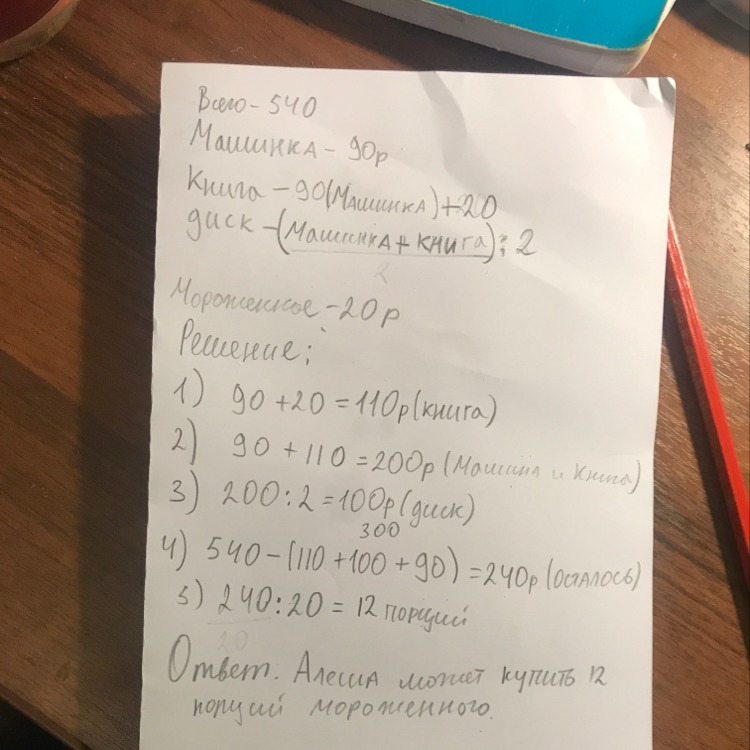 Всего - 540
Машинка - 90р
Книга - 90(Машинка)+20
диск - (Машинка + книга) : 2
2
Мороженное - 20р
Решение:
1) 90 + 20 = 110р (книга)
2) 90 + 110 = 200р (Машина и Книга)
3) 200 : 2 = 100р (диск)
300
4) 540 - (110 + 100 + 90) = 240р (осталось)
5) 240 : 20 = 12 порций
20
Ответ. Алеша может купить 12
порций мороженного.